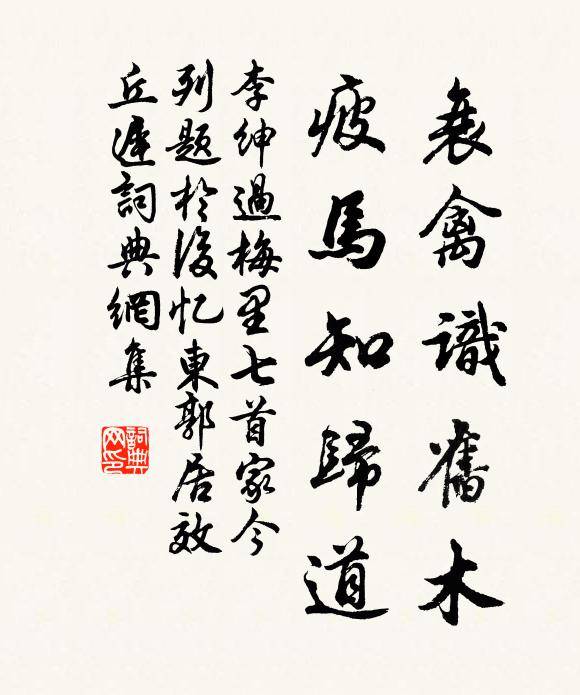 衰禽識舊木
疲馬知歸道
李紳過梅里七首家今
列題於後忆東郭居效
丘遲詞典網集
詞典
网印